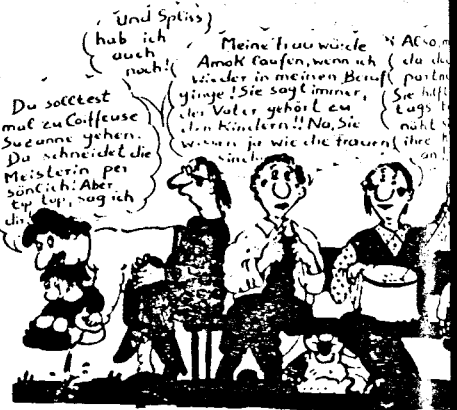 Und Spliss
hab ich
auch
noch!
Du solltest
mal zu Coiffeuse
Suzanne gehen.
Da schneidet die
Meisterin per
sönlich! Aber
tip top, sag ich
dir!
Meine Frau würde
Amok laufen, wenn ich
wieder in meinen Beruf
ginge! Sie sagt immer,
der Vater gehört zu
den Kindern!! Na, Sie
wissen ja wie die Frauen
sind
Also, m
da de
partn
Sie hilft
tags
näht
ihre
an!